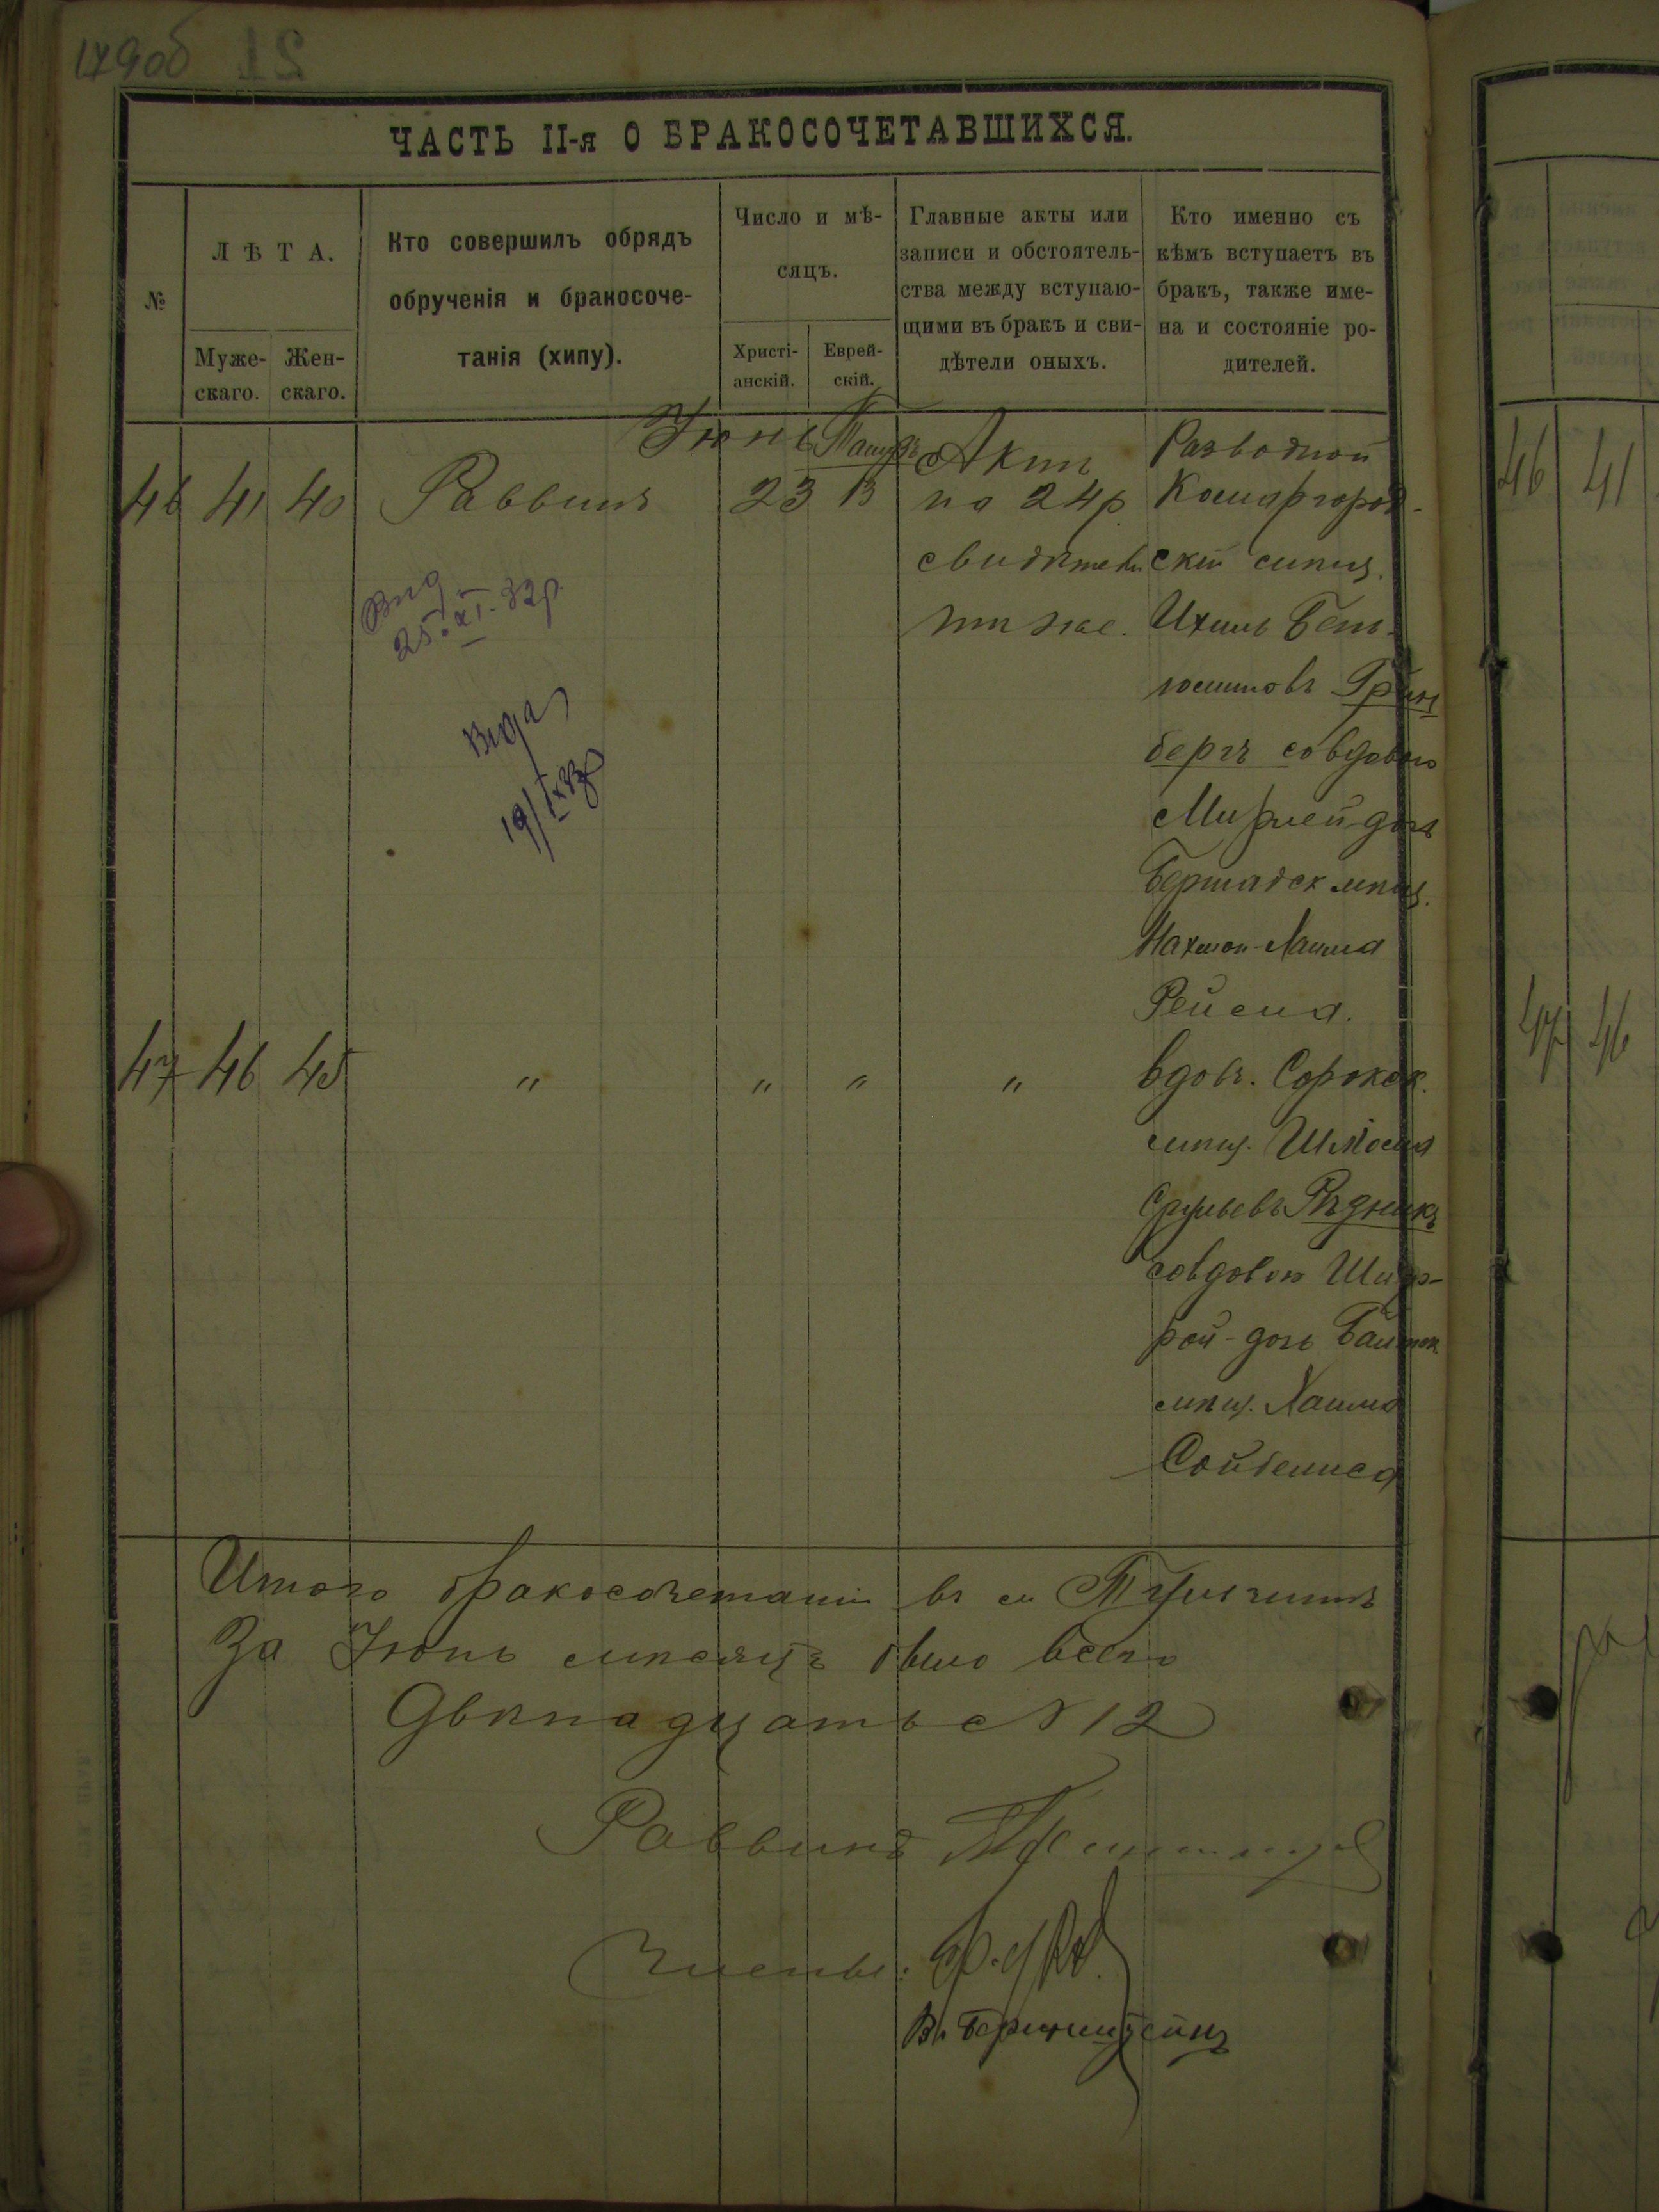 179об
ЧАСТЬ II-я О БРАКОСОЧЕТАВШИХСЯ.
№
ЛѢТА.
Муже-
скаго.
Жен-
скаго.
Кто совершилъ обрядъ
обрученія и бракосоче-
танія (хипу).
Число и мѣ-
сяцъ.
Христі-
анскій.
Еврей-
скій.
Главные акты или
записи и обстоятель-
ства между вступаю-
щими въ бракъ и сви-
дѣтели оныхъ.
Кто именно съ
кѣмъ вступаетъ въ
бракъ, также име-
на и состояніе ро-
дителей.
46 41 40 Раввинъ Іюнь 23 13
Актъ
на 24р.
свидѣтели
тѣ же.
Разводной
Комаргород-
скій мѣщ.
Ихиль Бень-
юминовъ Грин
бергъ со вдовою
Мирлей-дочь
Бершадск мѣщ.
Нахман-Лаима
Рейсиа.
47 46 45 " " " "
вдов. Сорокск.
мѣщ. Шліома
Срулевъ Рѣдникъ
со вдовою Шиф-
рой-дочь
мѣщ. Хаима
Вид
25.XI.32р.
Вида
19/IX 33р
Итого бракосочетаній въ м Тульчинѣ
За Іюнь мѣсяцъ было всего
Двѣнадцать № 12
Раввинъ
Члены:
В. Бернштейнъ
46 41
47 46